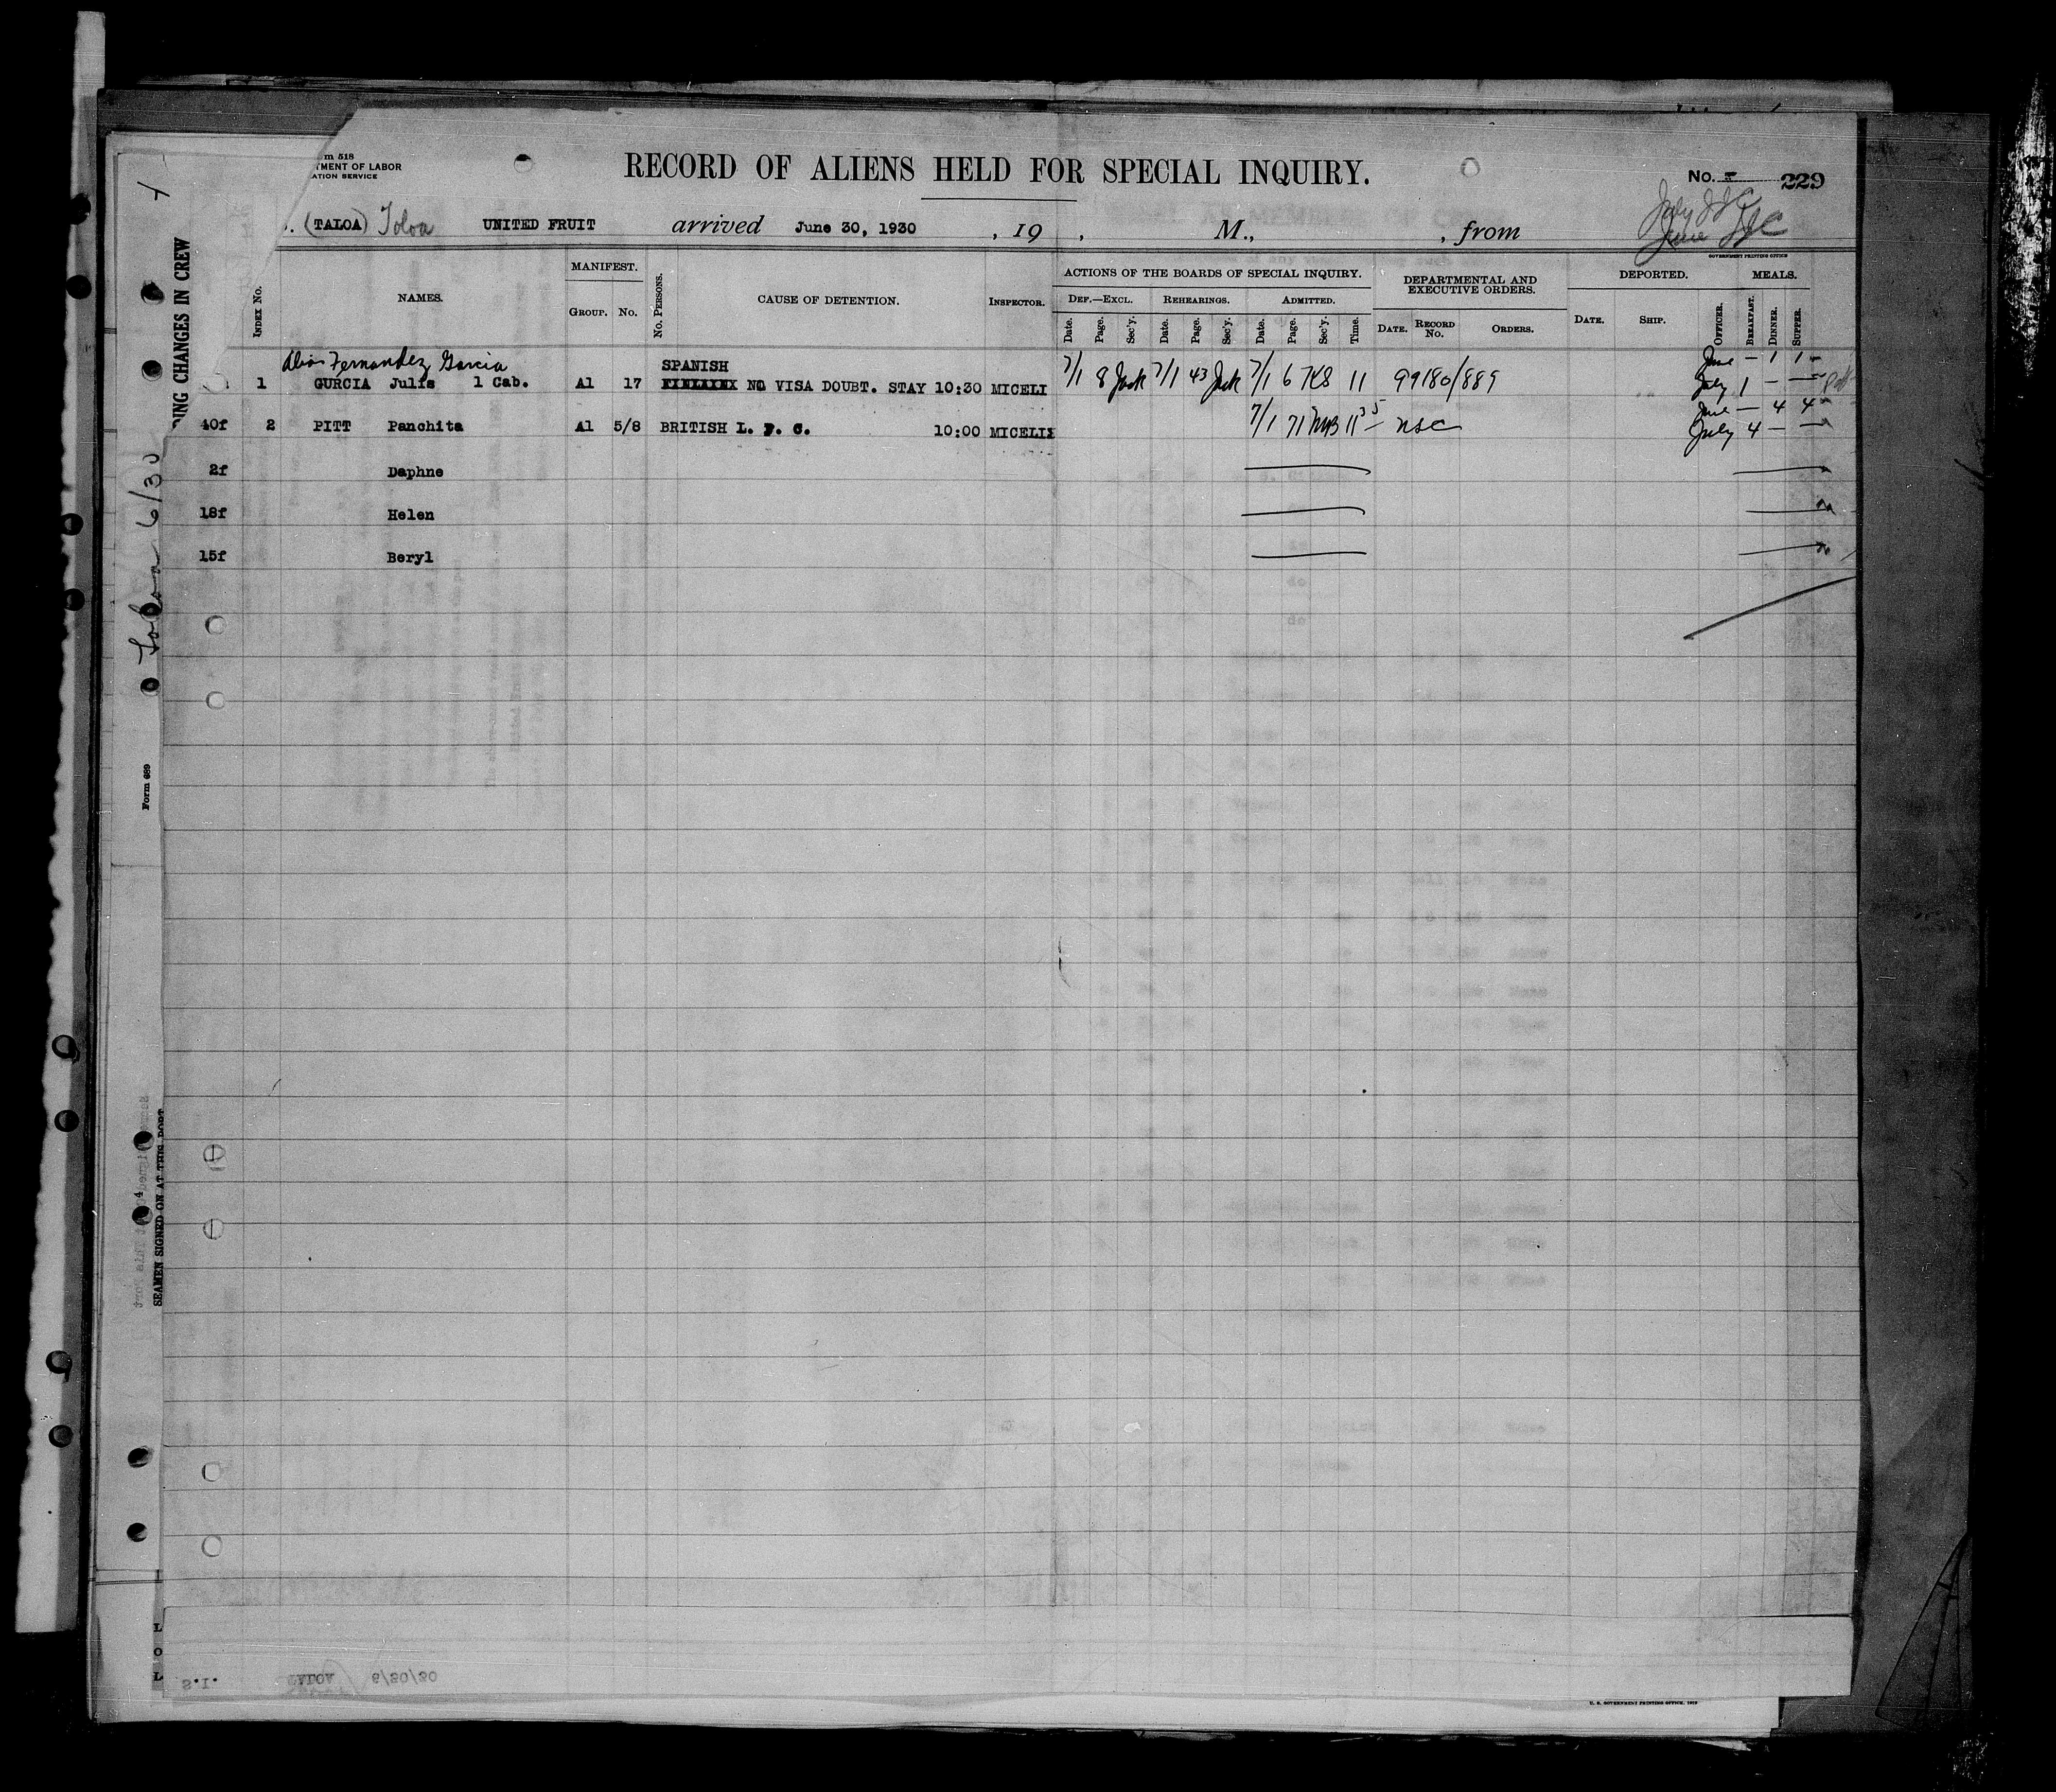 m 518
TMENT OF LABOR
ATION SERVICE
RECORD OF ALIENS HELD FOR SPECIAL INQUIRY.
No. 229
(TALOA) Toloa UNITED FRUIT arrived June 30, 1930 , 19 , M., , from
July
June
GOVERNMENT PRINTING OFFICE
INDEX No. NAMES. MANIFEST. GROUP. No. No. PERSONS. CAUSE OF DETENTION. INSPECTOR.
ACTIONS OF THE BOARDS OF SPECIAL INQUIRY.
DEF.—EXCL. REHEARINGS. ADMITTED.
Date. Page. Sec'y. Date. Page. Sec'y. Date. Page. Sec'y. Time.
DEPARTMENTAL AND EXECUTIVE ORDERS.
DATE. RECORD No. ORDERS.
DEPORTED.
DATE. SHIP. OFFICER.
MEALS.
BREAKFAST. DINNER. SUPPER.
Fernandez Garcia SPANISH June — 1 1
1 GURCIA Julis 1 Cab. Al 17 NO VISA DOUBT. STAY 10:30 MICELI 7/1 8 7/1 43 7/1 6 11 99180/889 July 1 — —
June — 4 4
40f 2 PITT Panchita Al 5/8 BRITISH L. P. C. 10:00 MICELI 7/1 71 11 35 nsc July 4 — —
2f Daphne
18f Helen
15f Beryl
DING CHANGES IN CREW
Toloa 6/30
Form 689
SEAMEN SIGNED ON AT THIS PORT
S.I. TALOA 6/30/30
U. S. GOVERNMENT PRINTING OFFICE, 1919